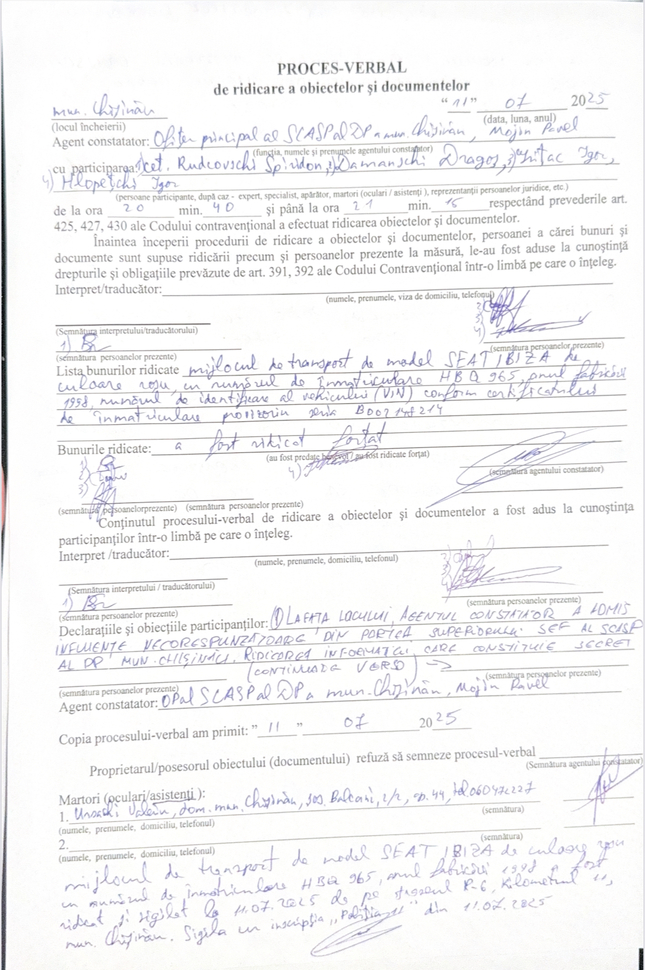 PROCES-VERBAL
de ridicare a obiectelor și documentelor
mun. Chișinău "11" 07 2025
(locul încheierii) (data, luna, anul)
Agent constatator: Ofițer principal al SCASP al DP a mun. Chișinău, Mojin Pavel
(funcția, numele și prenumele agentului constatator)
cu participarea: 1) cet. Rudcovschi Spiridon, 2) Damanschi Dragoș, 3) Igor,
4) Hlopețchi Igor
(persoane participante, după caz - expert, specialist, apărător, martori (oculari / asistenți ), reprezentanții persoanelor juridice, etc.)
de la ora 20 min. 40 și până la ora 21 min. 15 respectând prevederile art.
425, 427, 430 ale Codului contravențional a efectuat ridicarea obiectelor și documentelor.
Înaintea începerii procedurii de ridicare a obiectelor și documentelor, persoanei a cărei bunuri și
documente sunt supuse ridicării precum și persoanelor prezente la măsură, le-au fost aduse la cunoștință
drepturile și obligațiile prevăzute de art. 391, 392 ale Codului Contravențional într-o limbă pe care o înțeleg.
Interpret/traducător:
(numele, prenumele, viza de domiciliu, telefonul)
2)
3)
(Semnătura interpretului/traducătorului) 4)
1)
(semnătura persoanelor prezente) (semnătura persoanelor prezente)
Lista bunurilor ridicate mijlocul de transport de model SEAT IBIZA de
culoare roșu, cu numărul de înmatriculare HBQ 965, anul fabricării
1998, numărul de identificare al vehiculului (VIN) conform certificatului
de înmatriculare provizoriu seria B002148214
Bunurile ridicate: a fost ridicat forțat
(au fost predate benevol / au fost ridicate forțat)
1) 4)
2) (semnătura agentului constatator)
3)
(semnătura persoanelor prezente) (semnătura persoanelor prezente)
Conținutul procesului-verbal de ridicare a obiectelor și documentelor a fost adus la cunoștința
participanților într-o limbă pe care o înțeleg.
Interpret /traducător:
(numele, prenumele, domiciliu, telefonul)
(Semnătura interpretului / traducătorului)
1)
(semnătura persoanelor prezente) (semnătura persoanelor prezente)
Declarațiile și obiecțiile participanților: (1) LA FAȚA LOCULUI, AGENTUL CONSTATATOR A ADMIS
INFLUENȚE NECORESPUNZĂTOARE, DIN PARTEA SUPERIORULUI ȘEF AL SCASP
AL DP MUN. CHIȘINĂU. RIDICAREA INFORMAȚIEI, CARE CONSTITUIE SECRET
(CONTINUARE VERSO) →
(semnătura persoanelor prezente) (semnătura persoanelor prezente)
Agent constatator: OP al SCASP al DP a mun. Chișinău, Mojin Pavel
Copia procesului-verbal am primit: "11" 07 2025
Proprietarul/posesorul obiectului (documentului) refuză să semneze procesul-verbal
(Semnătura agentului constatator)
Martori (oculari/asistenți ):
1. Ursachi Valeriu, dom. mun. Chișinău, șos. Balcani, 2/2, ap. 44, tel 06047c227
(numele, prenumele, domiciliu, telefonul) (semnătura)
2.
(numele, prenumele, domiciliu, telefonul) (semnătura)
mijlocul de transport de model SEAT IBIZA de culoare roșu
cu numărul de înmatriculare HBQ 965, anul fabricării 1998 a fost
ridicat și sigilat la 11.07.2025 de pe traseul R-6, kilometrul 11,
mun. Chișinău. Sigila cu inscripția "Poliția 11" din 11.07.2025